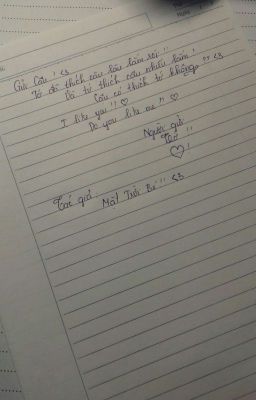 Gửi Cậu! <3
Tớ đã thích cậu lâu lắm rồi!!
Và tớ thích cậu nhiều lắm!
Cậu có thích tớ không?? <3
I like you!! ♡
Do you like me?! ♡
Người gửi
Tớ!!
♡!
Tác giả
Mặt Trời Bé!! <3